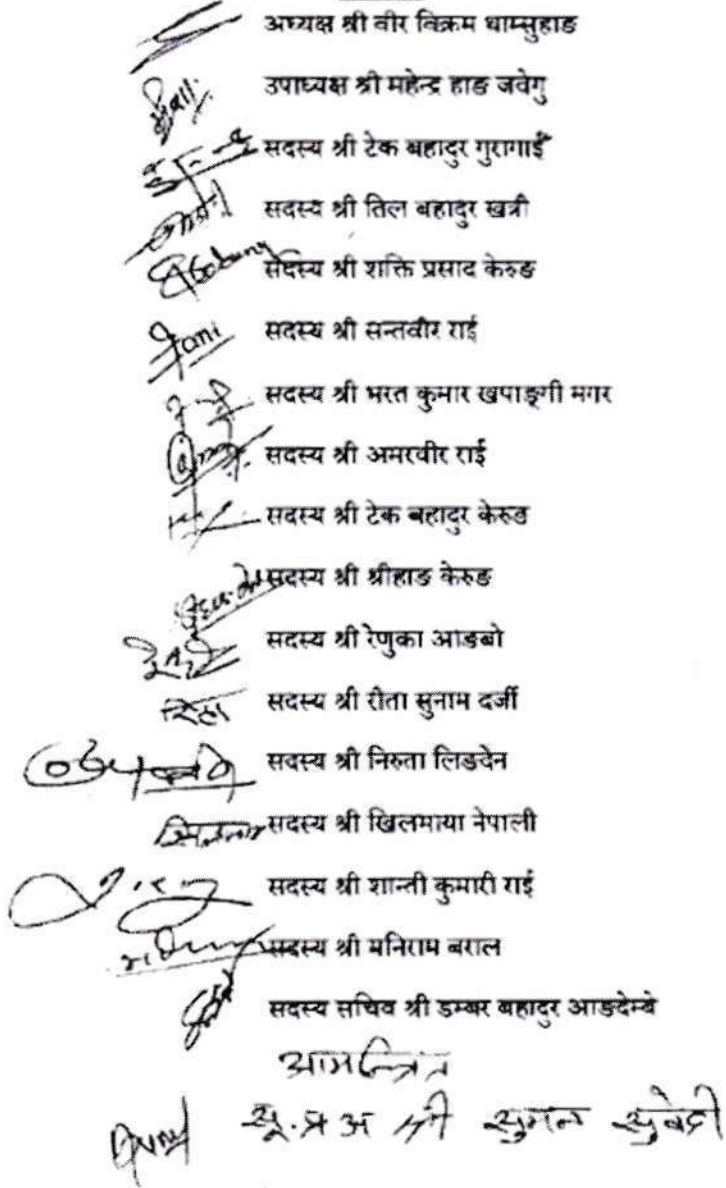 अध्यक्ष श्री वीर विक्रम थाम्सुहाङ
उपाध्यक्ष श्री महेन्द्र हाङ जवेगु
सदस्य श्री टेक बहादुर गुरागाई
सदस्य श्री तिल बहादुर खत्री
सदस्य श्री शक्ति प्रसाद केरुङ
Jani सदस्य श्री सन्तवीर राई
सदस्य श्री भरत कुमार खपाङ्गी मगर
सदस्य श्री अमरवीर राई
सदस्य श्री टेक बहादुर केरुङ
सदस्य श्री श्रीहाङ केरुङ
सदस्य श्री रेणुका आङबो
रिता सदस्य श्री रीता सुनाम दर्जी
सदस्य श्री निरुता लिङदेन
सदस्य श्री खिलमाया नेपाली
सदस्य श्री शान्ती कुमारी राई
सदस्य श्री मनिराम बराल
सदस्य सचिव श्री डम्बर बहादुर आङदेम्बे
आमन्त्रित
सू.प्र अ श्री सुमन सुवेदी